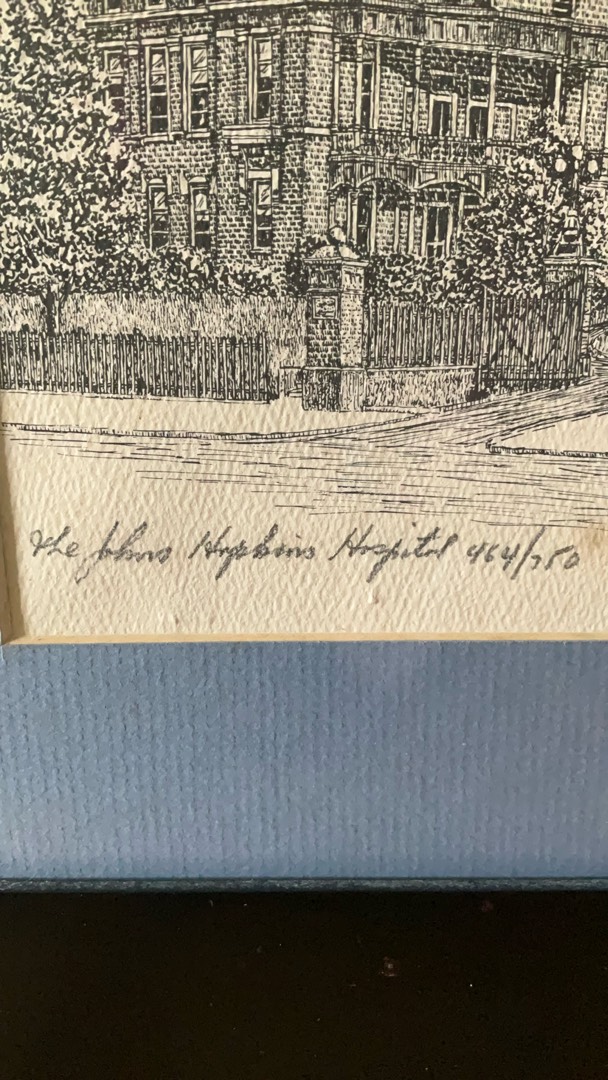 The Johns Hopkins Hospital 464/750